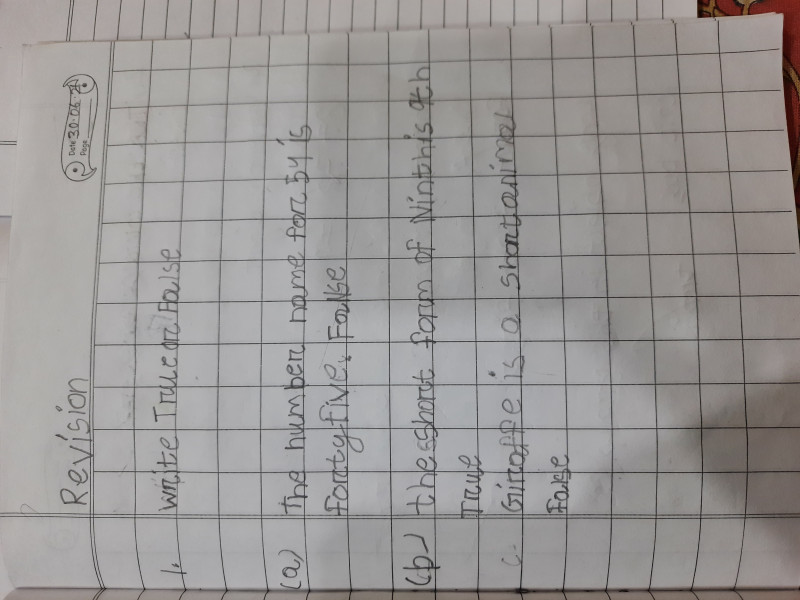 Revision
Date 30-06-21
Page
1. write True or False
(a) The number name for 54 is
forty five. False
(b) the short form of Ninth is 9th
True
c. Giraffe is a short animal
False